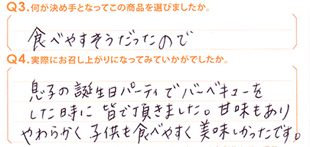 Q3.何が決め手となってこの商品を選びましたか。
食べやすそうだったので
Q4.実際にお召し上がりになってみていかがでしたか。
息子の誕生日パーティでバーベキューを
した時に皆で頂きました。甘味もあり
やわらかく子供も食べやすく美味しかったです。